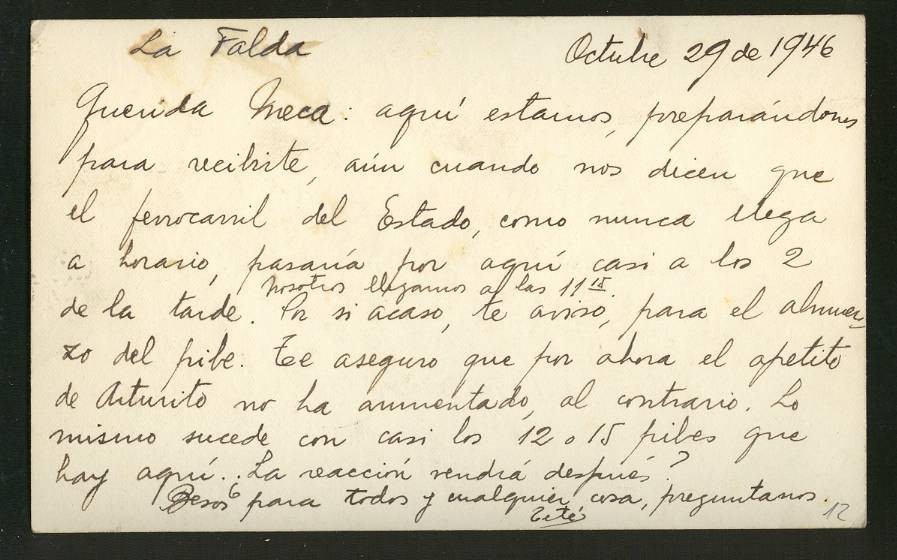 La Falda
Octubre 29 de 1946
Querida Meca: aquí estamos, preparándonos
para recibirte, aún cuando nos dicen que
el ferrocarril del Estado, como nunca llega
a horario, pasaría por aquí casi a los 2
nosotros llegamos a las 11 15.
de la tarde. Por si acaso, te aviso, para el almuer-
zo del pibe. Te aseguro que por ahora el apetito
de Arturito no ha aumentado, al contrario. Lo
mismo sucede con casi los 12 o 15 pibes que
hay aquí. ¿La reacción vendrá después?
Besos para todos y cualquier cosa, preguntanos.
Teté
12